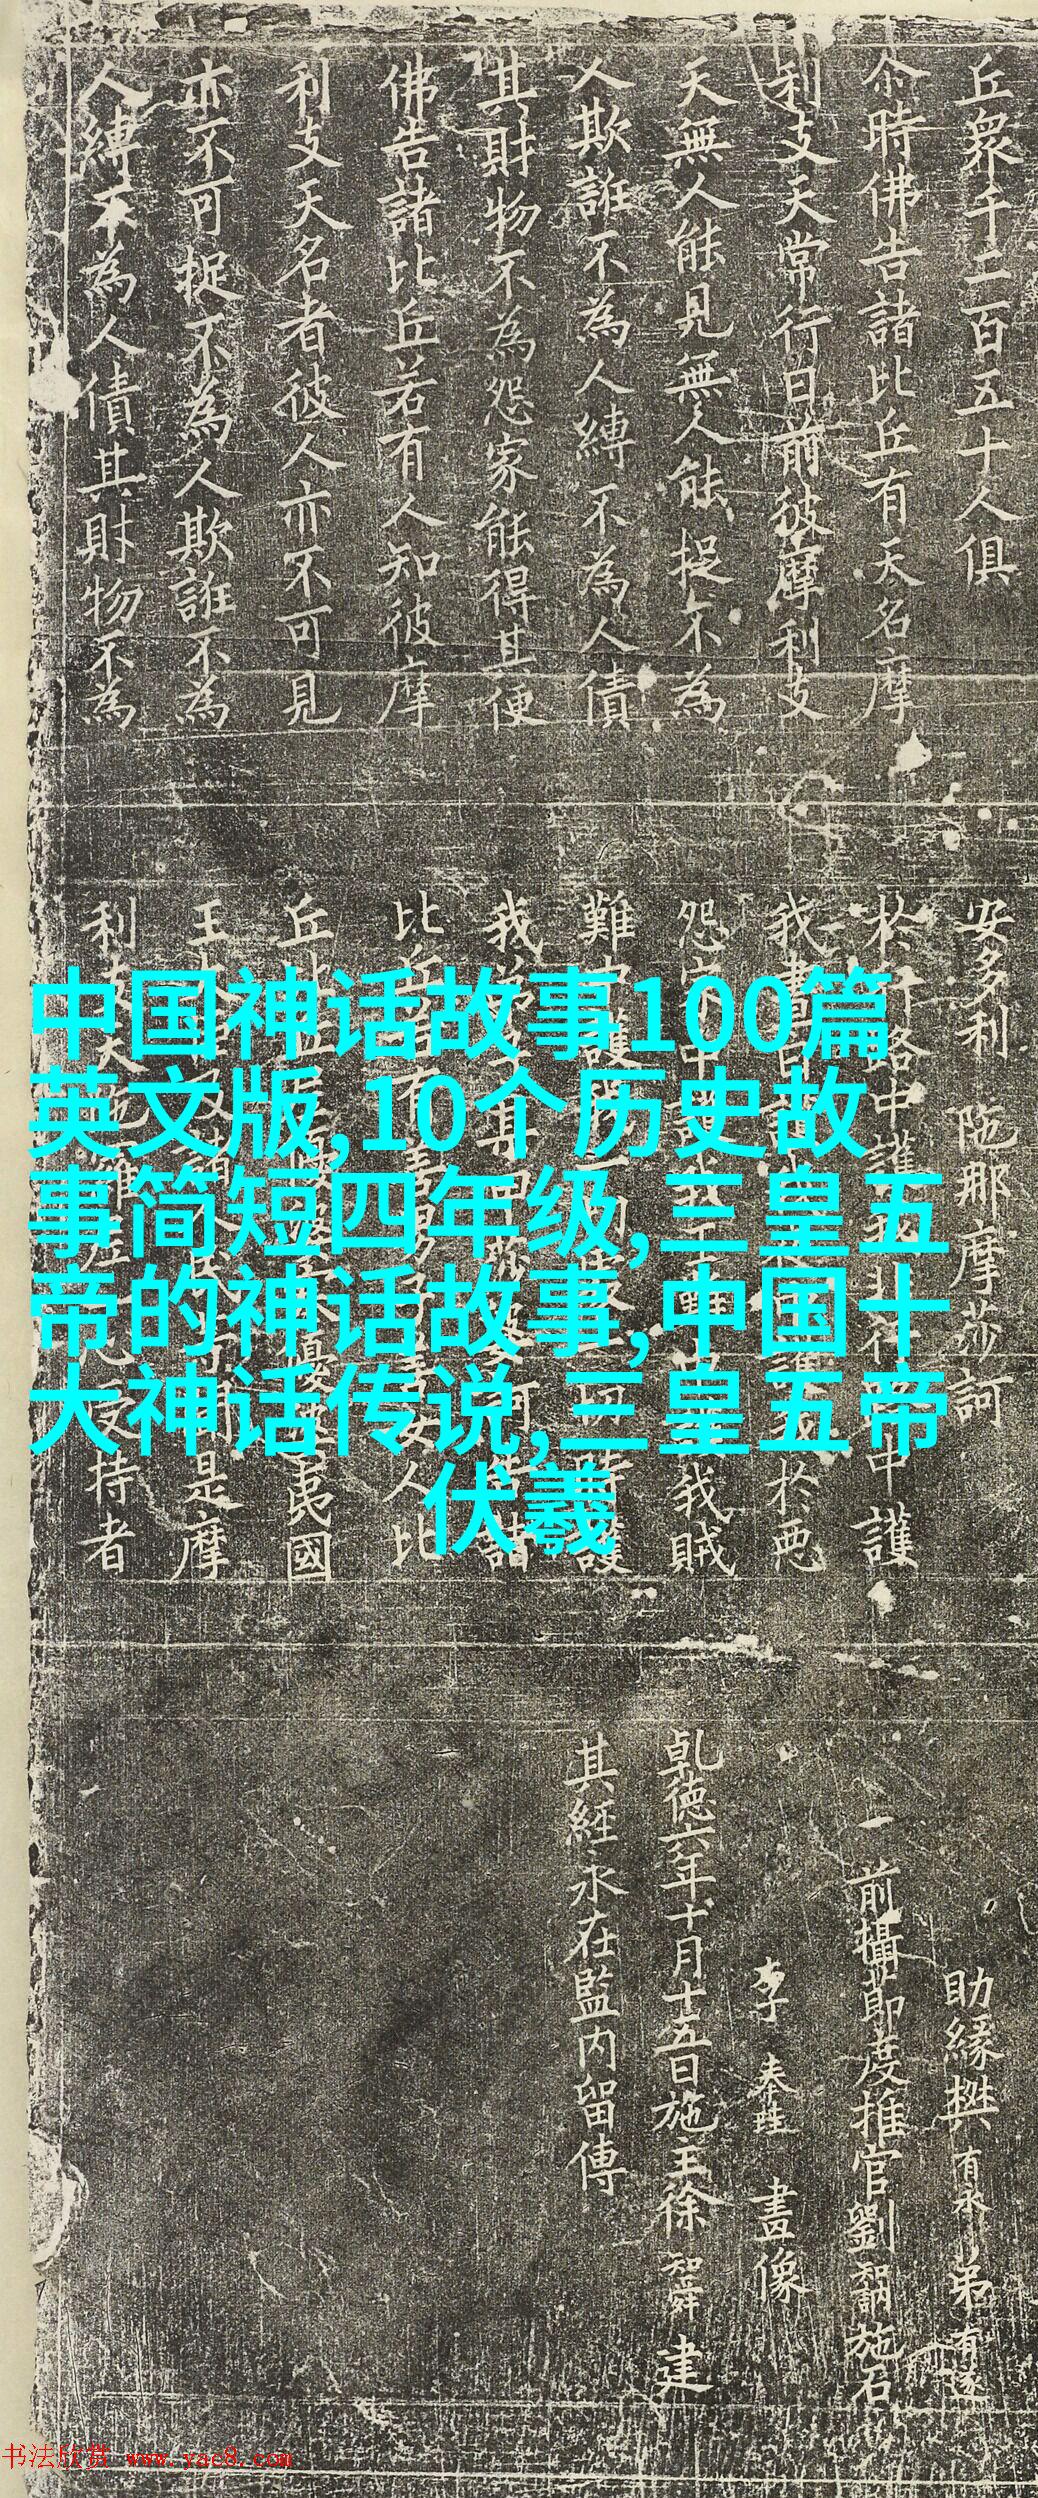 丘眾千二百五十人俱
尒時佛告諸比丘有天名摩
利支天常行日前彼摩利支
天無人能見無人能捉不為
人欺誑不為人縛不為人債
其財物不為怨家能得其便
佛告諸比丘若有人知彼摩
利支天名者彼人亦不可見
亦不可捉不為人欺誑不為
人縛不為人債其財物不為
安多利 陁那摩莎訶
於行路中護我非行路中護
我晝日於惡
怨家中我賊
難中護護
我
比丘人比
丘夷國
王是摩
利支天持者
中国神话故事100篇
英文版,10个历史故
事简短四年级,三皇五
帝的神话故事,中国十
大神话传说,三皇五帝
伏羲
助緣樊有永弟有遂
前攝節度推官劉智韜施石
李奉珪 畫像
乹德六年十月十五日施主徐智舜建
其經永在監内留傳
书法欣赏 www.yac8.com